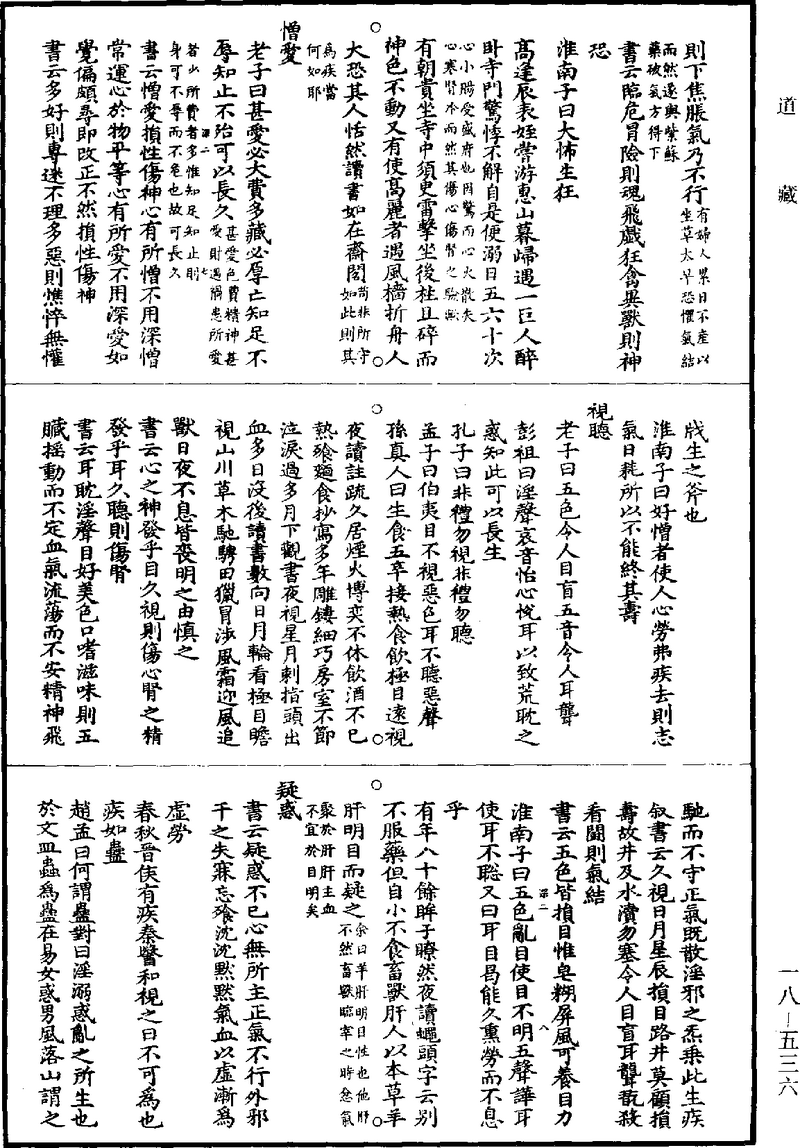 道藏
則下焦脹氣乃不行有婦人累日不產以
而然遂與紫蘇坐草太早恐懼氣結
藥被氣方得下
書云臨危冒險則魂飛戲狂禽異獸則神
恐
淮南子曰大怖生狂
高逢辰表姪嘗游惠山暮歸遇一巨人醉
臥寺門驚悸不解自是便溺日五六十次
心小腸受盛府也因驚而心火散失
心寒腎冷而然其傷心傷腎之驗歟
有朝貴坐寺中須臾雷擊坐後柱且碎而
神色不動又有使高麗者遇風檣折舟人
大恐其人恬然讀書如在齋閣苟非所守如此則其
為疾當
何如耶
憎愛
老子曰甚愛必大費多藏必厚亡知足不
辱知止不殆可以長久甚愛色費精神甚
愛財遇禍患所愛
者少所費者多惟知足知止則
身可不辱而不危也故可長久
第二
七
書云憎愛損性傷神心有所憎不用深憎
常運心於物平等心有所愛不用深愛如
覺偏頗尋即改正不然損性傷神
書云多好則專迷不理多惡則憔悴無懽
戕生之斧也
淮南子曰好憎者使人心勞弗疾去則志
氣日耗所以不能終其壽
視聽
老子曰五色令人目盲五音令人耳聾
彭祖曰淫聲哀音怡心悅耳以致荒耽之
惑知此可以長生
孔子曰非禮勿視非禮勿聽
孟子曰伯夷目不視惡色耳不聽惡聲
孫真人曰生食五辛接熱食飲極目遠視
夜讀註疏久居煙火博奕不休飲酒不已
熱飡麵食抄寫多年雕鏤細巧房室不節
泣淚過多月下觀書夜視星月刺指頭出
血多日沒後讀書數向日月輪看極目瞻
視山川草木馳騁田獵冒涉風霜迎風追
獸日夜不息皆喪明之由慎之
書云心之神發乎目久視則傷心腎之精
發乎耳久聽則傷腎
書云耳耽淫聲目好美色口嗜滋味則五
臟搖動而不定血氣流蕩而不安精神飛
馳而不守正氣既散淫邪之炁乘此生疾
叙書云久視日月星辰損目路井莫顧損
壽故井及水瀆勿塞令人目盲耳聾翫殺
看鬪則氣結
書云五色皆損目惟皂糊屏風可養目力
第二
八
淮南子曰五色亂目使目不明五聲譁耳
使耳不聦又曰耳目曷能久熏勞而不息
乎
有年八十餘眸子瞭然夜讀蠅頭字云別
不服藥但自小不食畜獸肝人以本草羊
肝明目而疑之余曰羊肝明目性也他肝
不然畜獸臨宰之時忿氣
聚於肝肝主血
不宜於目明矣
疑惑
書云疑惑不已心無所主正氣不行外邪
干之失寐忘飡沈沈默默氣血以虛漸為
虛勞
春秋晉侯有疾秦醫和視之曰不可為也
疾如蠱
趙孟曰何謂蠱對曰淫溺惑亂之所生也
於文皿蟲為蠱在易女惑男風落山謂之
一八—五三六